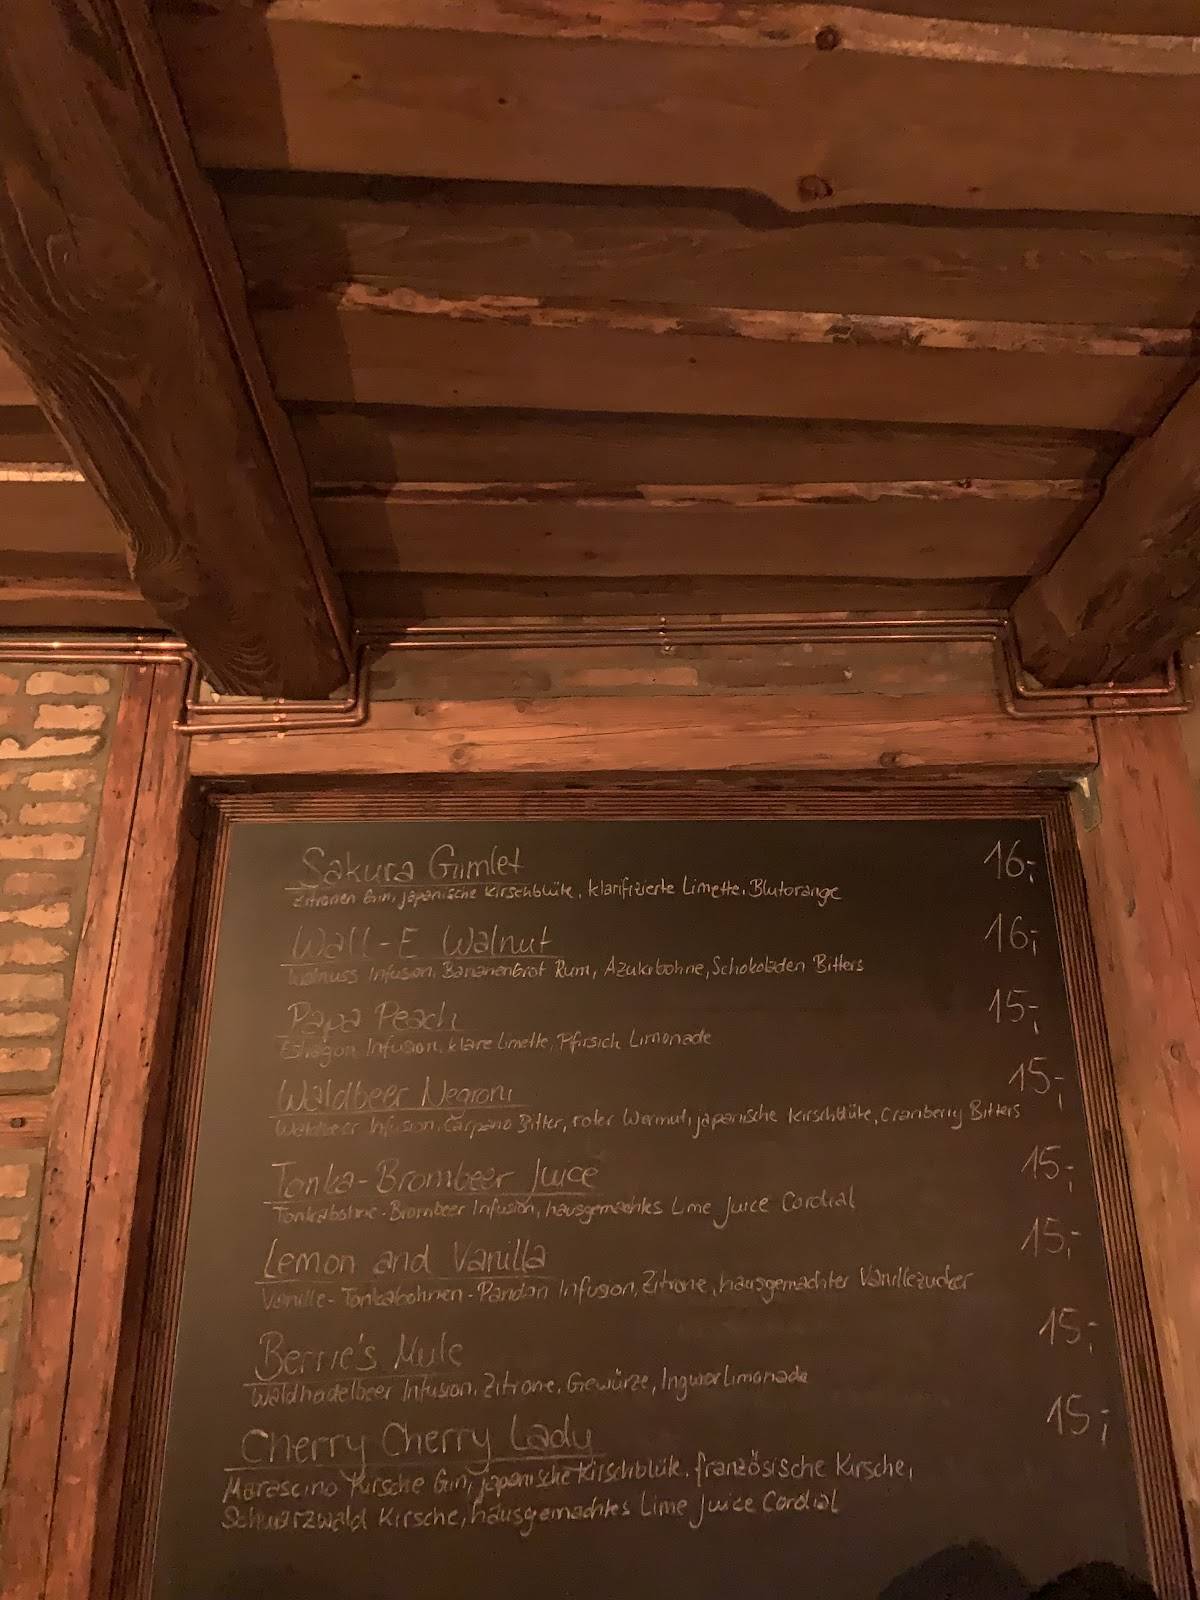 Sakura Gimlet 16,-
Zitronen Gin, japanische Kirschblüte, klarifizierte Limette, Blutorange
Wall-E Walnut 16,-
Walnuss Infusion, Bananenbrot Rum, Azukibohne, Schokoladen Bitters
Papa Peach 15,-
Estragon Infusion, klare Limette, Pfirsich Limonade
Waldbeer Negroni 15,-
Waldbeer Infusion, Carpano Bitter, roter Wermut, japanische Kirschblüte, Cranberry Bitters
Tonka-Brombeer Juice 15,-
Tonkabohne-Brombeer Infusion, hausgemachtes Lime Juice Cordial
Lemon and Vanilla 15,-
Vanille-Tonkabohnen-Pandan Infusion, Zitrone, hausgemachter Vanillezucker
Berrie's Mule 15,-
Waldhadelbeer Infusion, Zitrone, Gewürze, Ingwerlimonade
Cherry Cherry Lady 15,-
Marascino Kirsche Gin, japanische Kirschblüte, französische Kirsche,
Schwarzwald Kirsche, hausgemachtes Lime Juice Cordial